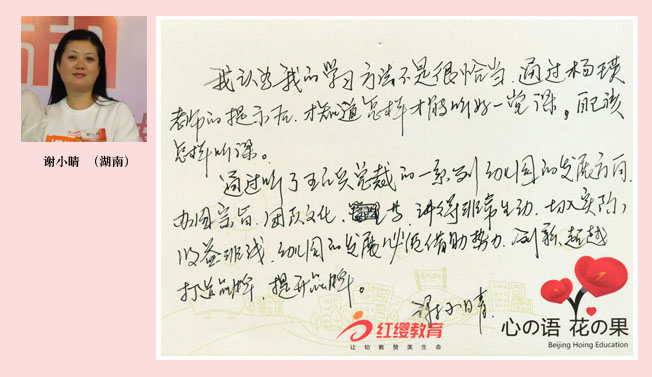 谢小晴 （湖南）
我认为我的学习方法不是很恰当，通过杨瑛
老师的提示后，才知道怎样才能听好一堂课，应该
怎样听课。
通过听了王红兵总裁的一系列幼儿园的发展方向，
办园宗旨，团队文化，等，讲得非常生动，切入实际，
收益匪浅，幼儿园的发展必须借助势力，创新，超越
打造品牌，提升品牌。
谢小晴
红缨教育
让幼教赞美生命
心の语 花の果
Beijing Hoing Education